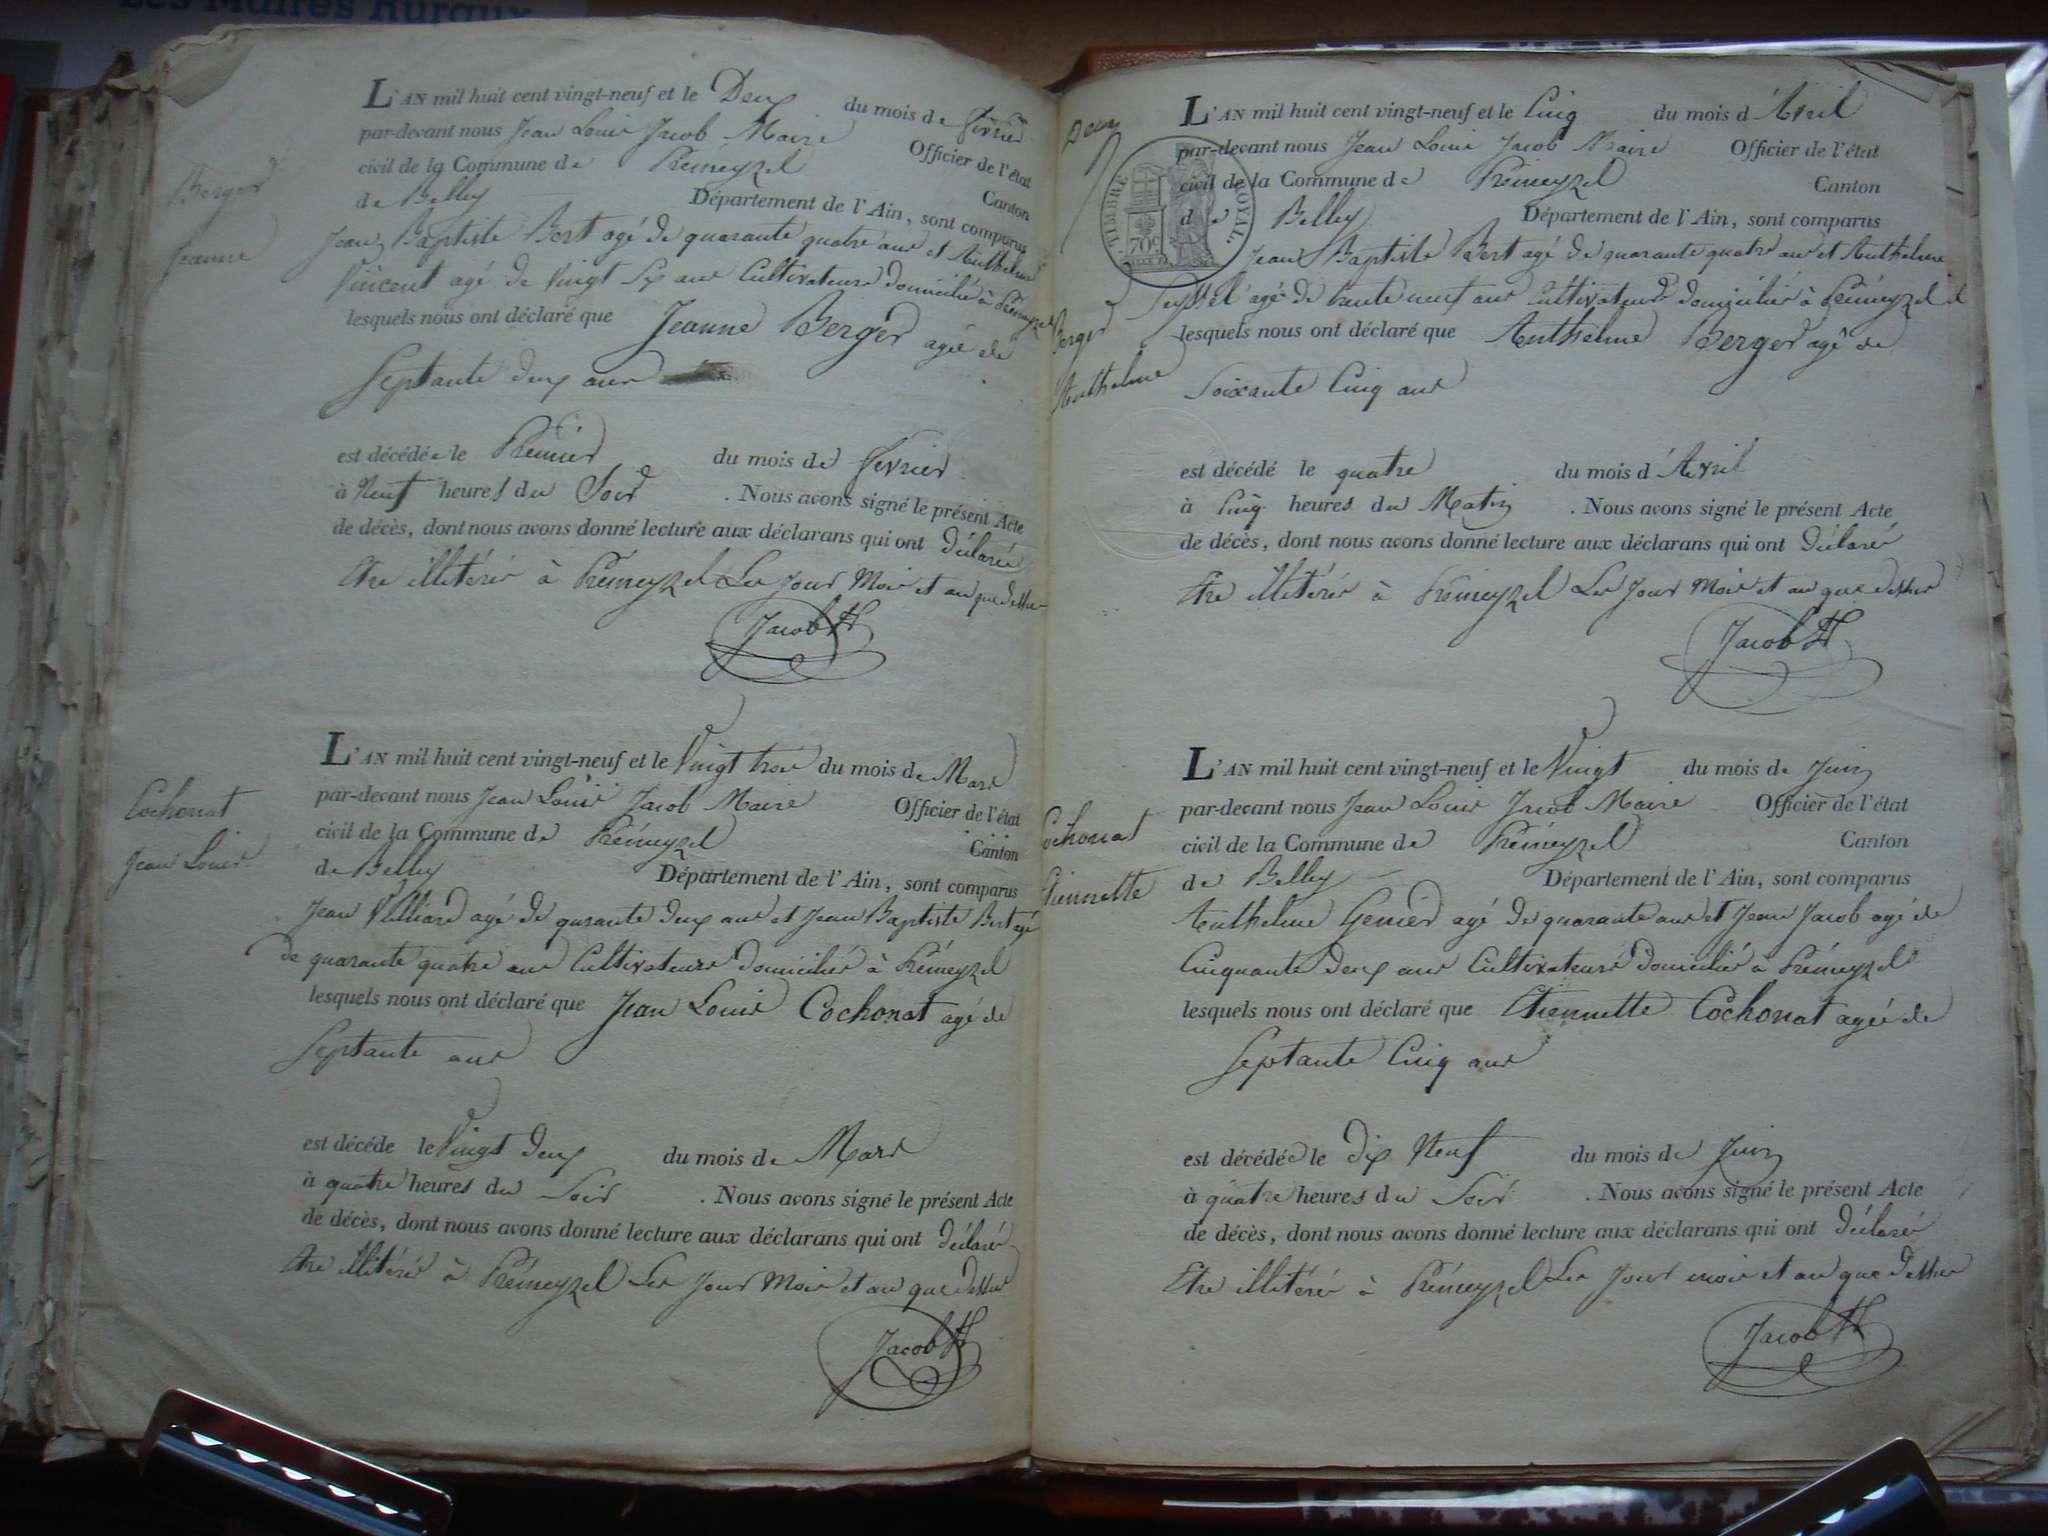 Les Maires Ruraux
L'AN mil huit cent vingt-neuf et le Deux du mois de fevrier
par-devant nous Jean Louis Jacob Maire Officier de l'état
civil de la Commune de Prémeyzel Canton
de Belley Département de l'Ain, sont comparus
Jean Baptiste Bert agé de quarante quatre ans et Anthelme
Vincent agé de vingt Six ans Cultivateurs domicilié à Prémeyzel
lesquels nous ont déclaré que Jeanne Berger agée de
Septante deux ans
est décédée le Premier du mois de fevrier
à Neuf heures du Soir . Nous avons signé le présent Acte
de décès, dont nous avons donné lecture aux déclarans qui ont déclaré
Etre illitérés à Prémeyzel Les jour Mois et an que dessus
Jacob
Berger
Jeanne
L'AN mil huit cent vingt-neuf et le Vingt trois du mois de Mars
par-devant nous Jean Louis Jacob Maire Officier de l'état
civil de la Commune de Prémeyzel Canton
de Belley Département de l'Ain, sont comparus
Jean Villiard agé de quarante deux ans et Jean Baptiste Bert agé
de quarante quatre ans Cultivateurs domiciliés à Prémeyzel
lesquels nous ont déclaré que Jean Louis Cochonat agé de
Septante ans
est décéde le Vingt deux du mois de Mars
à quatre heures du Soir . Nous avons signé le présent Acte
de décès, dont nous avons donné lecture aux déclarans qui ont déclaré
Etre illitérés à Prémeyzel Les Jour Mois et an que dessus
Jacob
Cochonat
Jean Louis
Deux
TIMBRE ROYAL
70c
L'AN mil huit cent vingt-neuf et le Cinq du mois d'Avril
par-devant nous Jean Louis Jacob Maire Officier de l'état
civil de la Commune de Prémeyzel Canton
de Belley Département de l'Ain, sont comparus
Jean Baptiste Bert agé de quarante quatre ans et Anthelme
Seyssel agé de trente neuf ans Cultivateurs domiciliés à Prémeyzel
lesquels nous ont déclaré que Anthelme Berger agé de
Soixante Cinq ans
est décédé le quatre du mois d'Avril
à Cinq heures du Matin . Nous avons signé le présent Acte
de décès, dont nous avons donné lecture aux déclarans qui ont déclaré
Etre illitérés à Prémeyzel Les Jour Mois et an que dessus
Jacob
Berger
Anthelme
L'AN mil huit cent vingt-neuf et le Vingt du mois de Juin
par-devant nous Jean Louis Jacob Maire Officier de l'état
civil de la Commune de Prémeyzel Canton
de Belley Département de l'Ain, sont comparus
Anthelme Genier agé de quarante ans et Jean Jacob agé de
Cinquante deux ans Cultivateurs domiciliés à Prémeyzel
lesquels nous ont déclaré que Etiennette Cochonat agée de
Septante Cinq ans
est décédée le dix Neuf du mois de Juin
à quatre heures du Soir . Nous avons signé le présent Acte
de décès, dont nous avons donné lecture aux déclarans qui ont déclaré
Etre illitérés à Prémeyzel Les Jour mois et an que dessus
Jacob
Cochonat
Etiennette